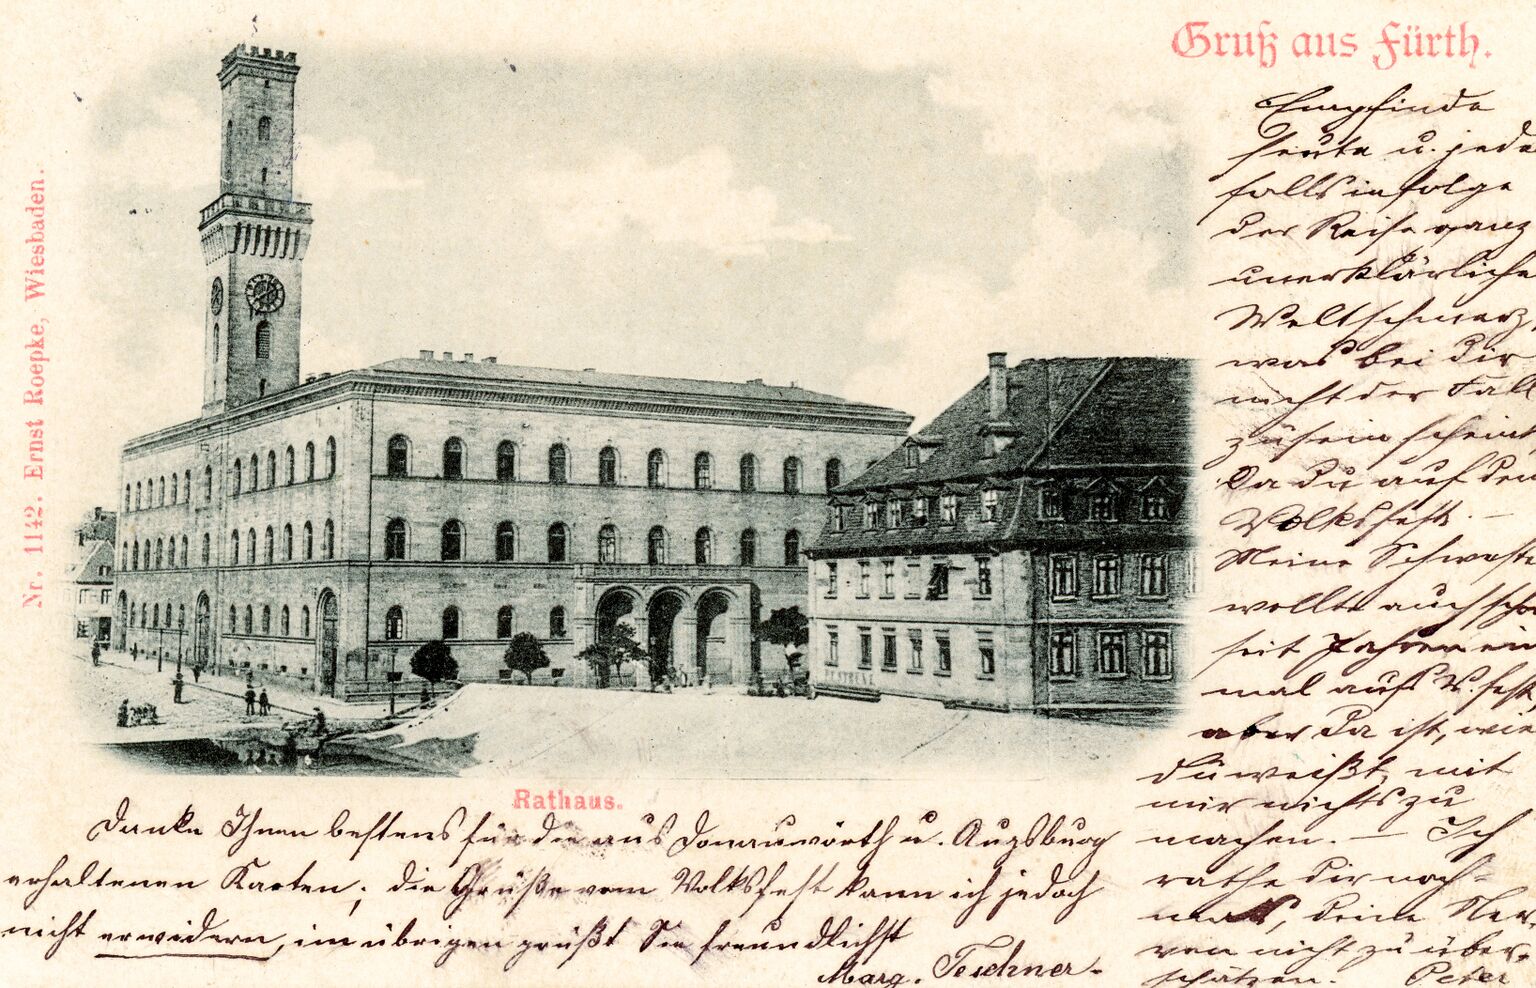 Gruß aus Fürth.
Nr. 1142. Ernst Roepke, Wiesbaden.
Empfinde
heute u. jeden
falls infolge
der Reise ganz
unerklärlichen
Weltschmerz,
was bei dir
nicht der Fall
zu sein scheint
Da du auf dem
Volksfest. —
Meine Schwester
wollte auch schon
seit Jahren ein
mal aufs V.fest,
aber da ist, wie
du weißt, mit
mir nichts zu
machen. — Ich
rathe dir noch-
mals, deine Ner-
ven nicht zu über-
schätzen. Peter
Rathaus.
Danke Ihnen bestens für die aus Donauwörth u. Augsburg
erhaltenen Karten; die Grüße vom Volksfest kann ich jedoch
nicht erwidern, im übrigen grüßt Sie freundlichst
Marg. Teschner.